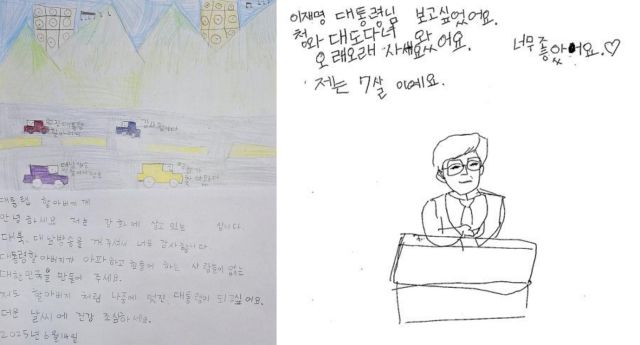 대통령 할아버지께
안녕하세요 저는 강화에 살고 있는 입니다.
대북, 대남방송을 꺼주셔서 너무 감사합니다
대통령할아버지가 아파하고 힘들어 하는 사람들이 없는
대한민국을 만들어 주세요.
저도 할아버지 처럼 나중에 멋진 대통령이 되고싶어요.
더운 날씨에 건강 조심하세요.
2025년 6월 14일
이재명 대통령님 보고싶었어요.
청와대도 다녀 왔어요.
오래오래 사세요
너무 좋았어요.♡
저는 7살 이예요.